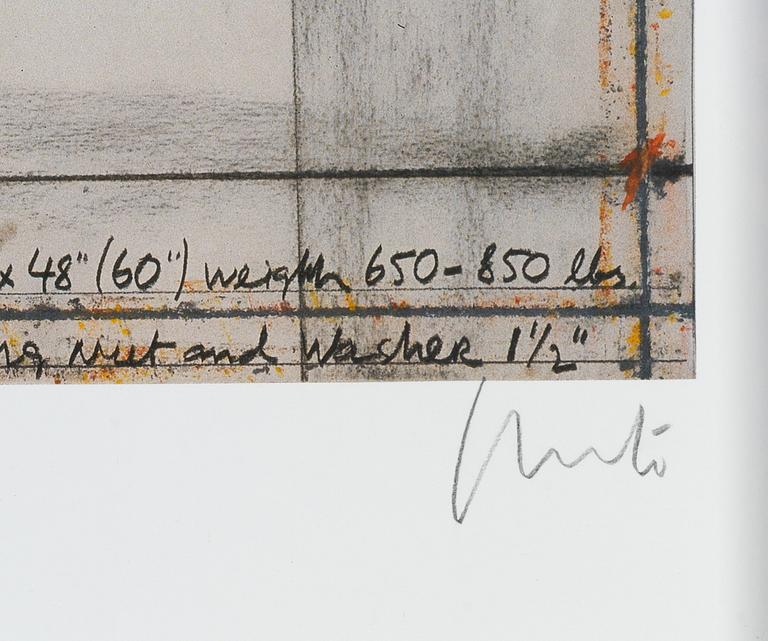 x 48" (60") weighth 650 - 850 lbs.
ng Nut and Washer 1 1/2"
Christo